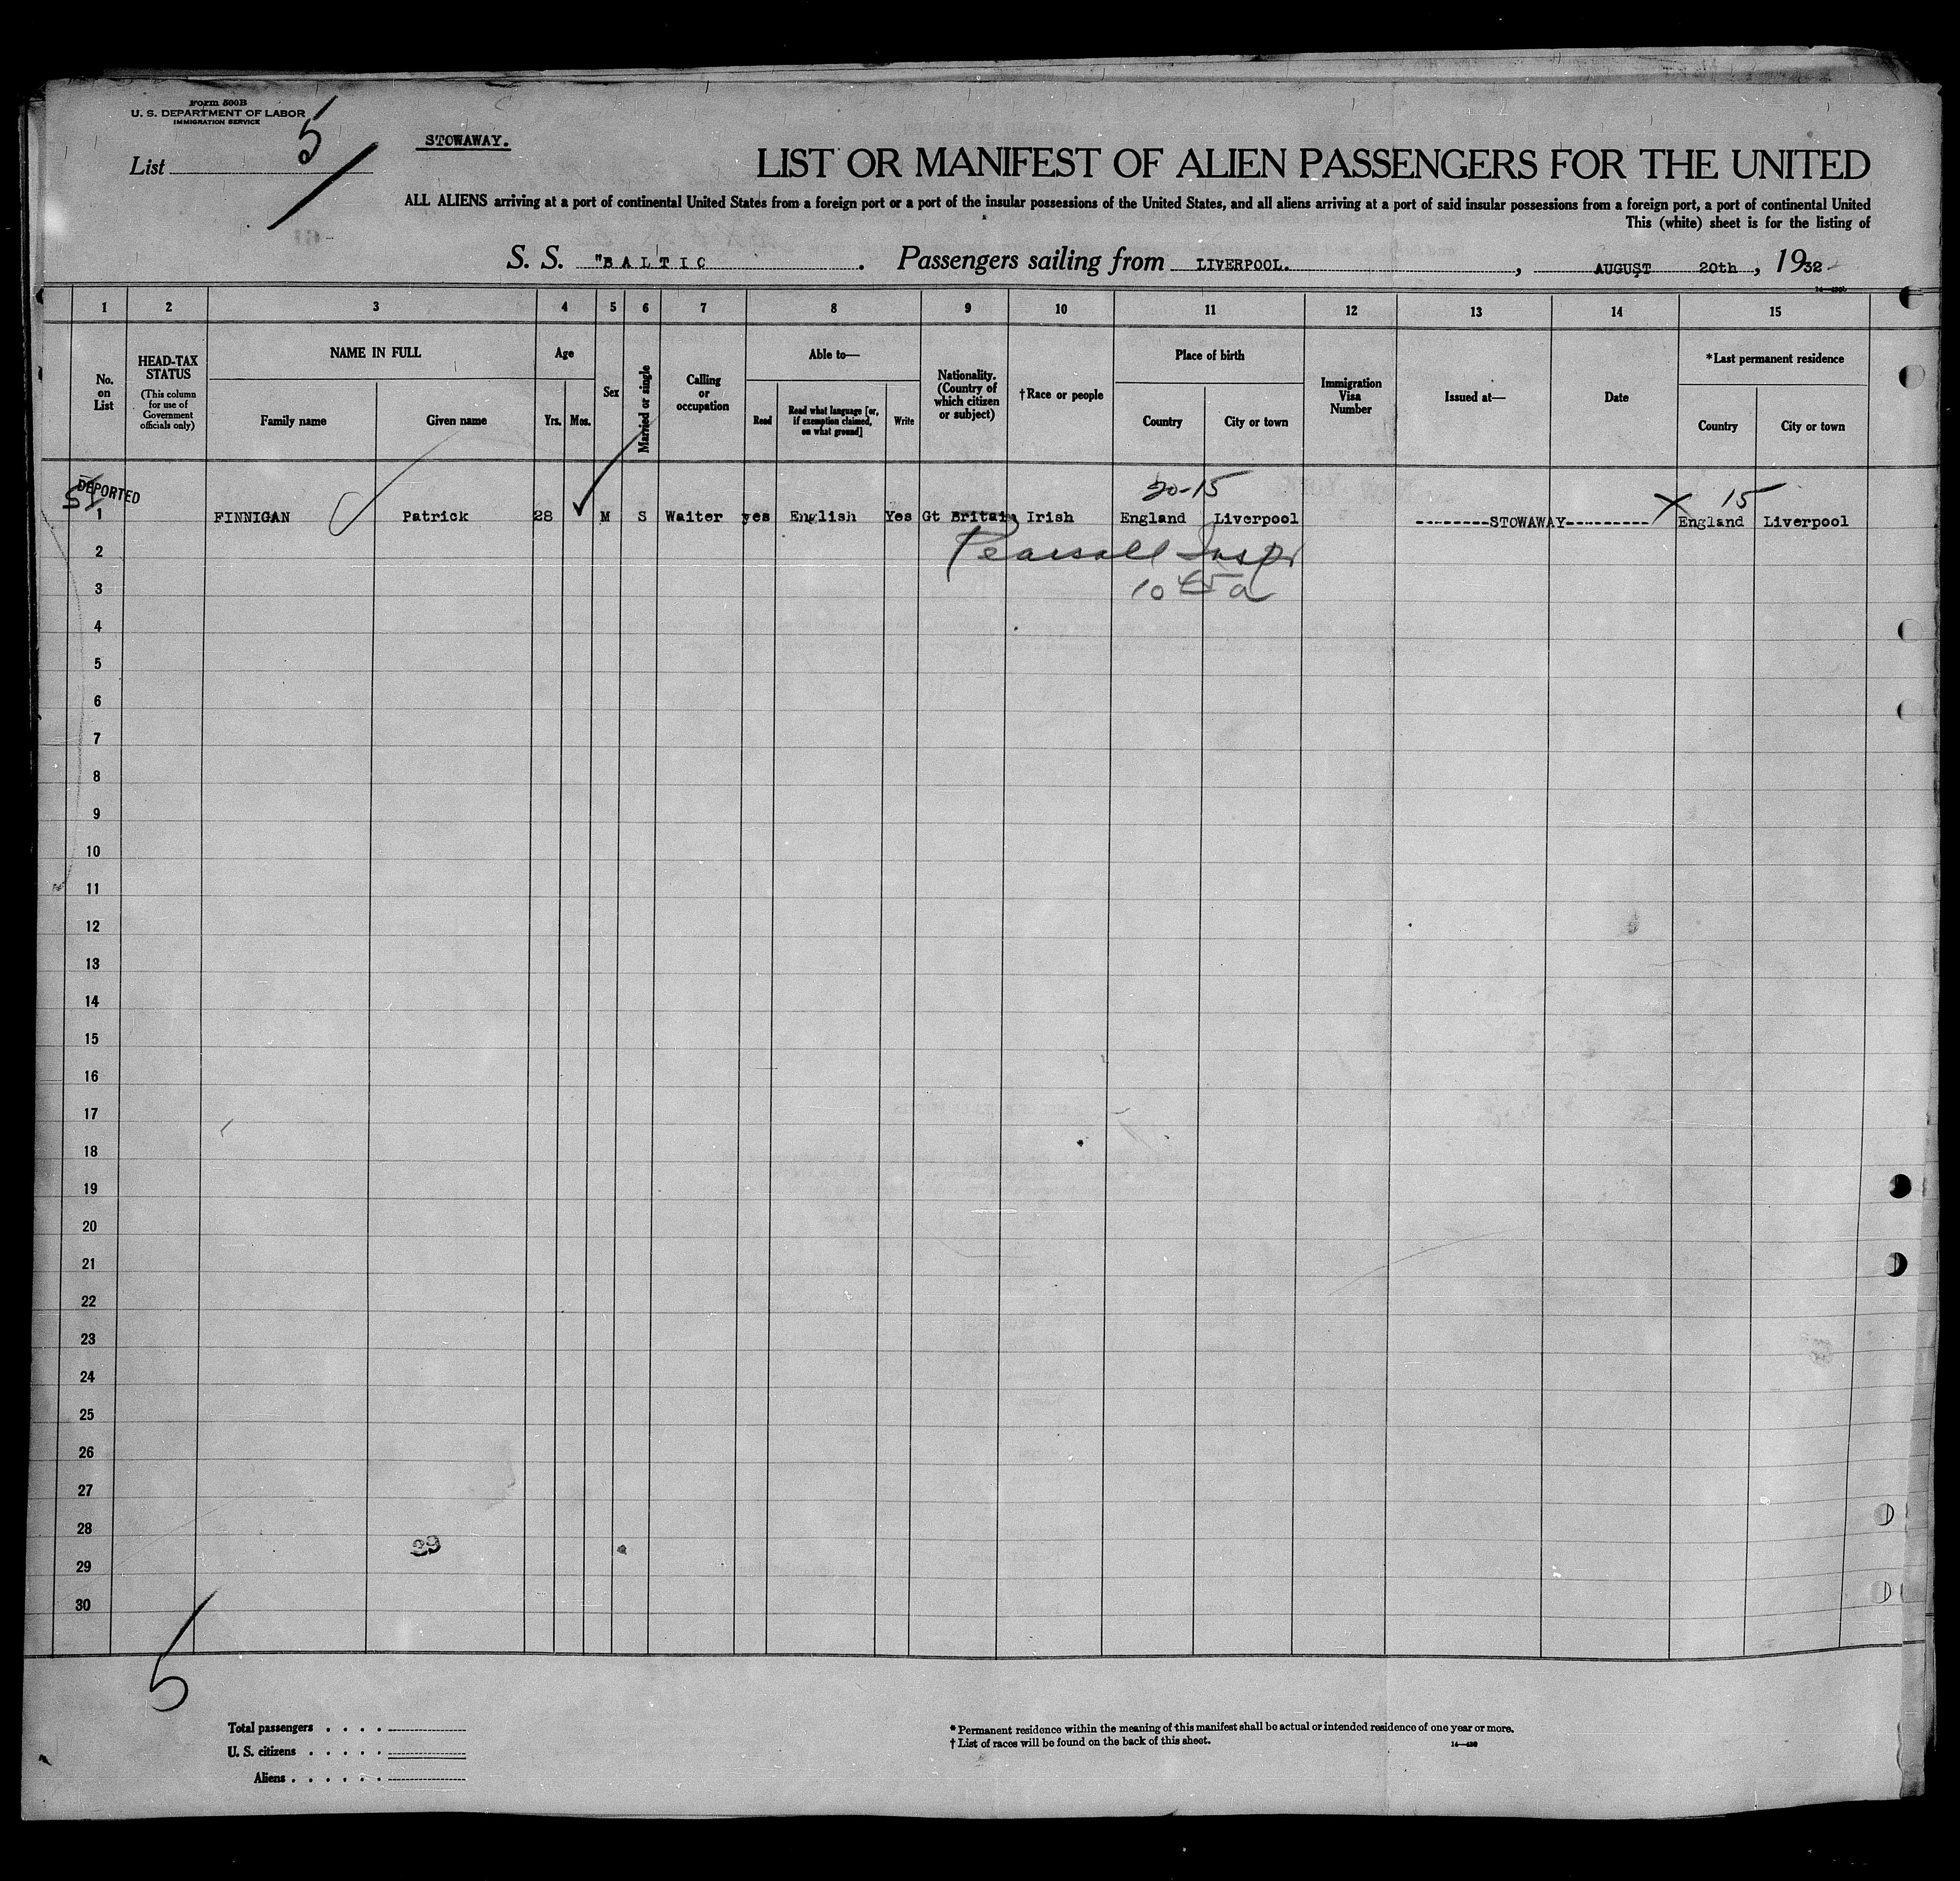 Form 500B
U. S. DEPARTMENT OF LABOR
IMMIGRATION SERVICE
List 5
STOWAWAY.
LIST OR MANIFEST OF ALIEN PASSENGERS FOR THE UNITED
ALL ALIENS arriving at a port of continental United States from a foreign port or a port of the insular possessions of the United States, and all aliens arriving at a port of said insular possessions from a foreign port, a port of continental United
This (white) sheet is for the listing of
S. S. "BALTIC. Passengers sailing from LIVERPOOL., AUGUST 20th, 1932
1 2 3 4 5 6 7 8 9 10 11 12 13 14 15
No. on List
HEAD-TAX STATUS
(This column for use of Government officials only)
NAME IN FULL
Family name
Given name
Age
Yrs.
Mos.
Sex
Married or single
Calling or occupation
Able to—
Read
Read what language [or, if exemption claimed, on what ground]
Write
Nationality. (Country of which citizen or subject)
†Race or people
Place of birth
Country
City or town
Immigration Visa Number
Issued at—
Date
*Last permanent residence
Country
City or town
DEPORTED
20-15
X 15
1 FINNIGAN Patrick 28 M S Waiter yes English Yes Gt Britain Irish England Liverpool --------STOWAWAY---------- England Liverpool
2 Pearsall Inspr
3 10 45 a
4
5
6
7
8
9
10
11
12
13
14
15
16
17
18
19
20
21
22
23
24
25
26
27
28
29
30
5
Total passengers . . . .
U. S. citizens . . . . .
Aliens . . . . . .
* Permanent residence within the meaning of this manifest shall be actual or intended residence of one year or more.
† List of races will be found on the back of this sheet.